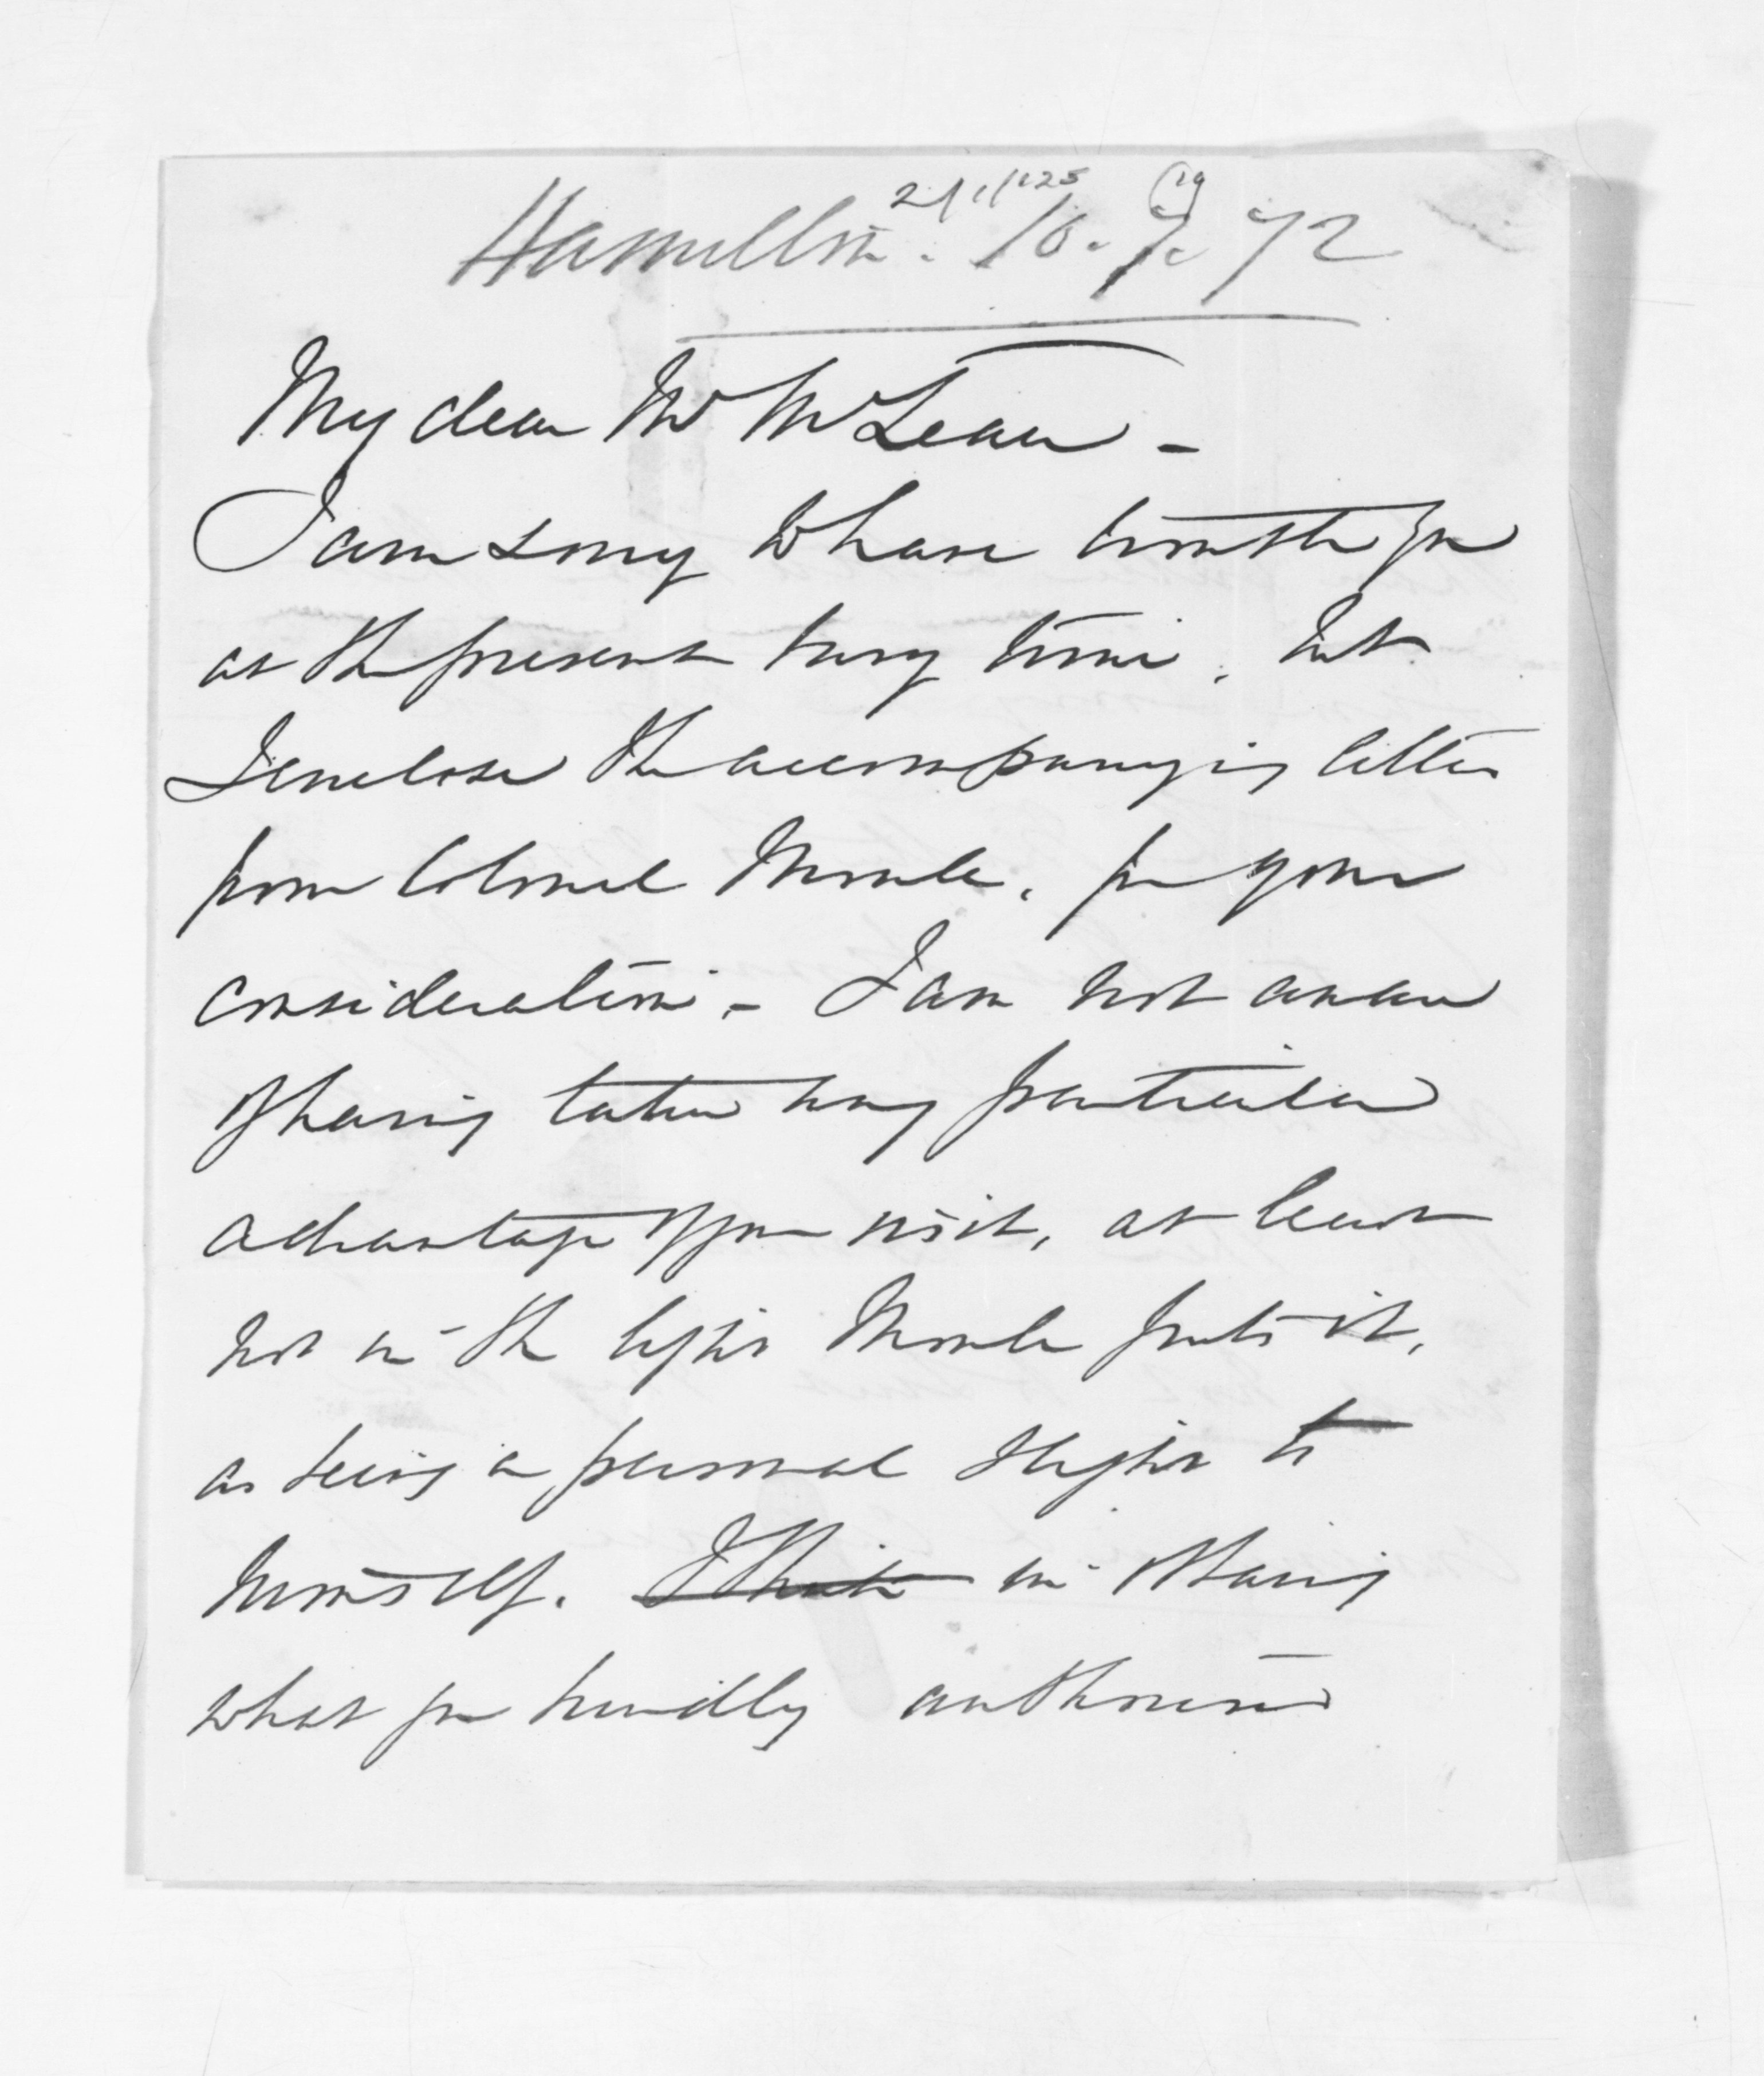 Hamilton. 16. 7. 72
My dear Mr McLean -
I am sorry to have trouble you
at the present busy time, but
I enclose the accompanying letter
from Colonel Moule, for your
consideration. - I am not aware
of having taken any particular
advantage of your visit, at least
not in the light Moule puts it,
as being a personal slight to
himself. I think in
what you kindly authorised